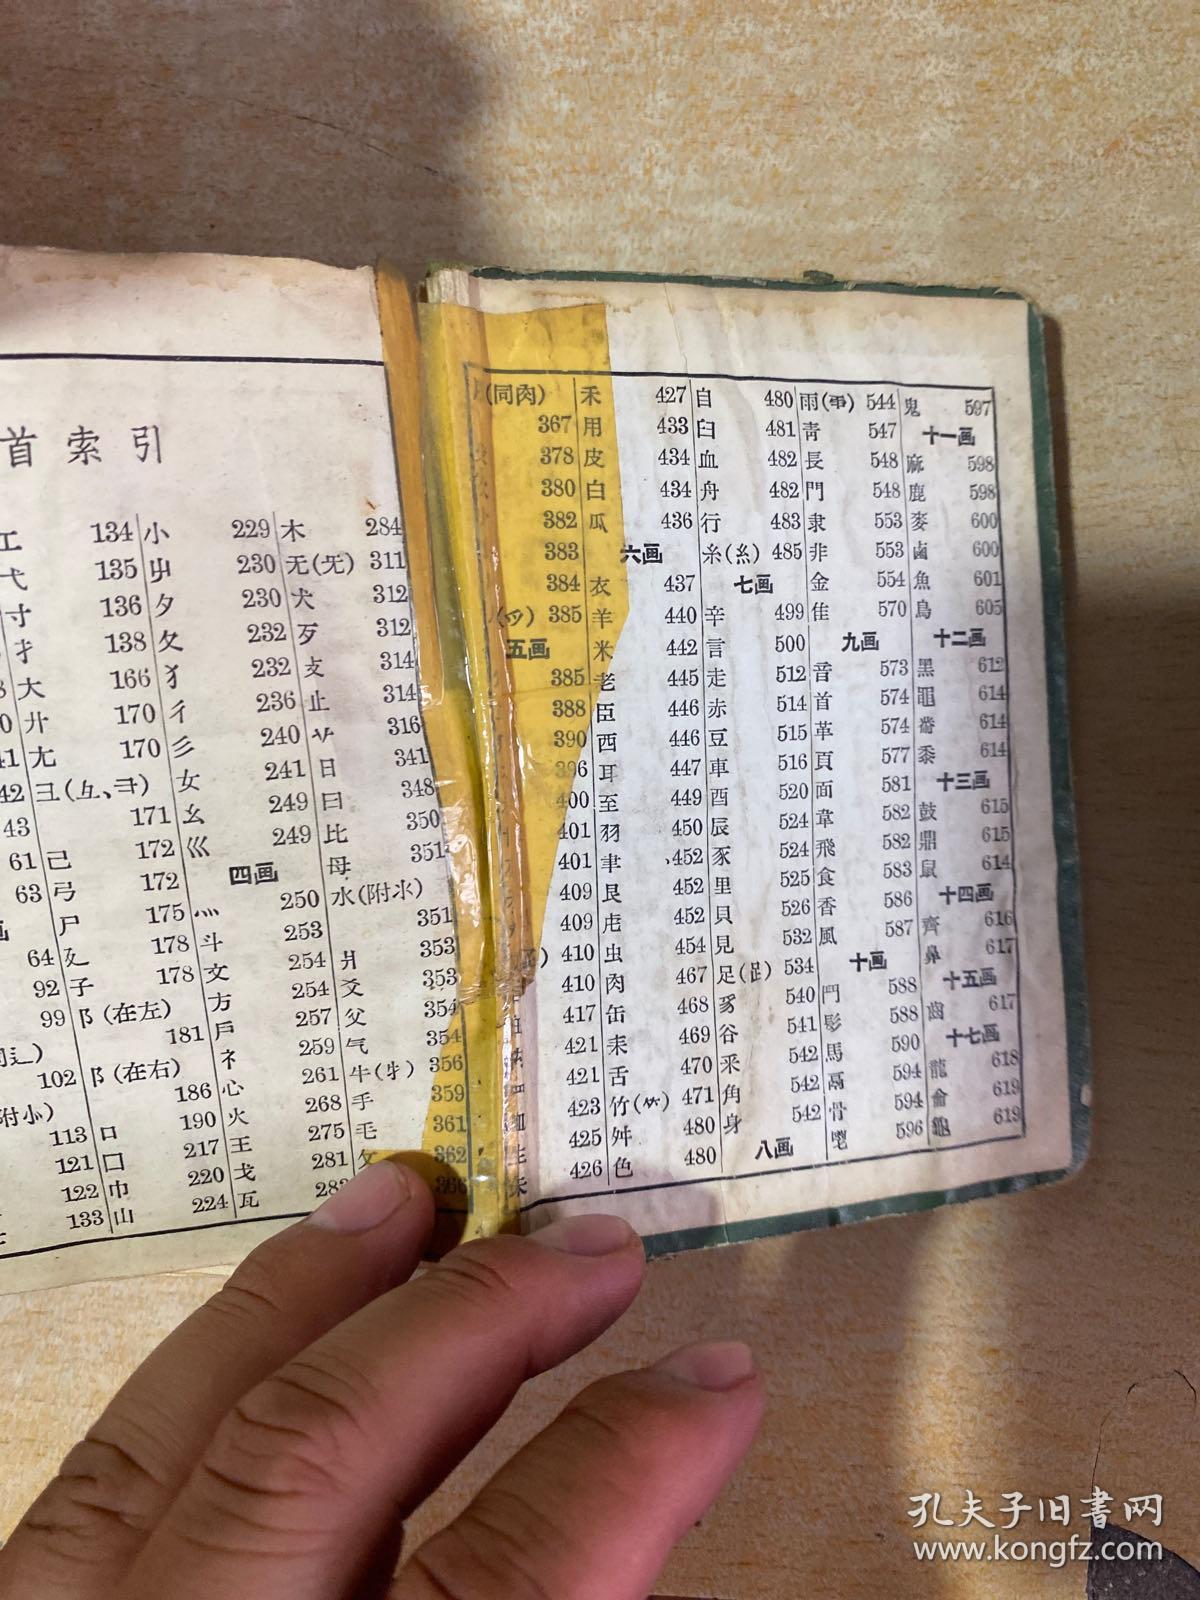 首索引
工 134
弋 135
寸 136
扌 138
大 166
廾 170
尢 170
彐(彑、⺕)
171
己 172
弓 172
尸 175
廴 178
子 178
阝(在左)
181
阝(在右)
186
口 190
囗 217
巾 220
山 224
小 229
屮 230
夕 230
夂 232
犭 232
彳 236
彡 240
女 241
幺 249
巛 249
四画
灬 250
斗 253
文 254
方 254
户 257
礻 259
心 261
火 268
王 275
戈 281
瓦
木 284
无(旡) 311
犬 312
歹 312
支 314
止 314
316
日 341
曰 348
比 350
母 351
水(附氺)
351
爿 353
爻 353
父 354
气 354
牛(牜) 356
手 359
毛 361
攵 362
366
(同肉)
367
378
380
382
383
384
385
五画
385
388
390
396
400
401
401
409
409
410
410
417
421
421
423
425
426
禾 427
用 433
皮 434
白 434
瓜 436
六画
衣 437
羊 440
米 442
老 445
臣 446
西 446
耳 447
至 449
羽 450
聿 452
艮 452
虍 452
虫 454
肉 467
缶 468
耒 469
舌 470
竹(⺮) 471
舛 480
色 480
自 480
臼 481
血 482
舟 482
行 483
糸(糹) 485
七画
辛 499
言 500
走 512
赤 514
豆 515
車 516
酉 520
辰 524
豕 524
里 525
貝 526
見 532
足(⻊) 534
豸 540
谷 541
釆 542
角 542
身 542
八画
雨(⻗) 544
靑 547
長 548
門 548
隶 553
非 553
金 554
隹 570
九画
音 573
首 574
革 574
頁 577
面 581
韋 582
飛 582
食 583
香 586
風 587
十画
鬥 588
髟 588
馬 590
鬲 594
骨 594
鬯 596
鬼 597
十一画
麻 598
鹿 598
麥 600
鹵 600
魚 601
鳥 605
十二画
黑 612
黽 614
黹 614
黍 614
十三画
鼓 615
鼎 615
鼠 614
十四画
齊 616
鼻 617
十五画
齒 617
十七画
龍 618
龠 619
龜 619
孔夫子旧書网
www.kongfz.com